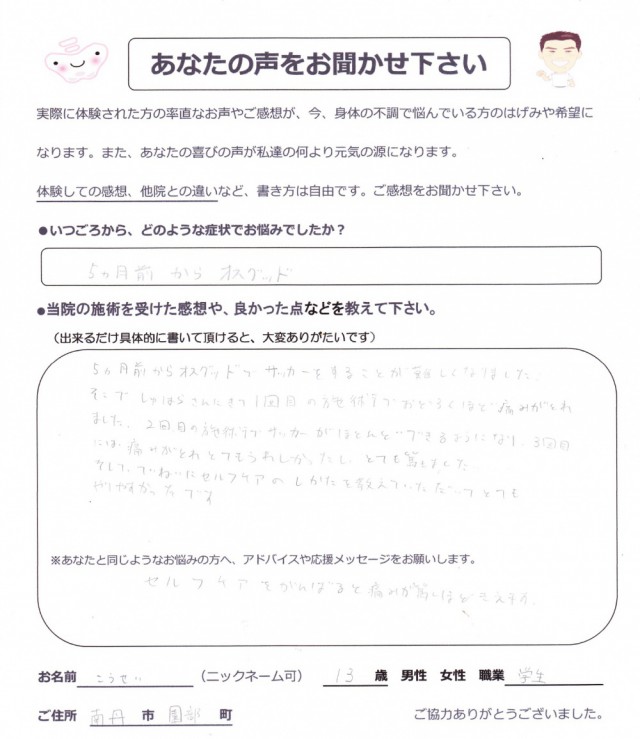 あなたの声をお聞かせ下さい
実際に体験された方の率直なお声やご感想が、今、身体の不調で悩んでいる方のはげみや希望に
なります。また、あなたの喜びの声が私達の何より元気の源になります。
体験しての感想、他院との違いなど、書き方は自由です。ご感想をお聞かせ下さい。
●いつごろから、どのような症状でお悩みでしたか？
5ヵ月前 から オスグッド
●当院の施術を受けた感想や、良かった点などを教えて下さい。
（出来るだけ具体的に書いて頂けると、大変ありがたいです）
5ヵ月前からオスグッドで サッカーをすることが難しくなりました。
そこで しのはらさんにきて1回目の施術でおどろくほど痛みがとれ
ました。2回目の施術でサッカーがほとんどできるようになり、3回目
には痛みがとれとてもうれしかったし、とても驚きました
そして、ていねいにセルフケアの しかたを教えていただいてとても
やりやすかったです
※あなたと同じようなお悩みの方へ、アドバイスや応援メッセージをお願いします。
セルフケアをがんばると痛みが驚くほど
お名前 こうせい （ニックネーム可） 13 歳 男性 女性 職業 学生
ご住所 南丹 市 園部 町 ご協力ありがとうございました。